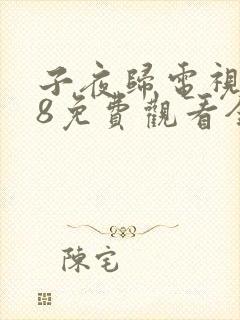 子夜歸電視
8免費觀看全
陳宅